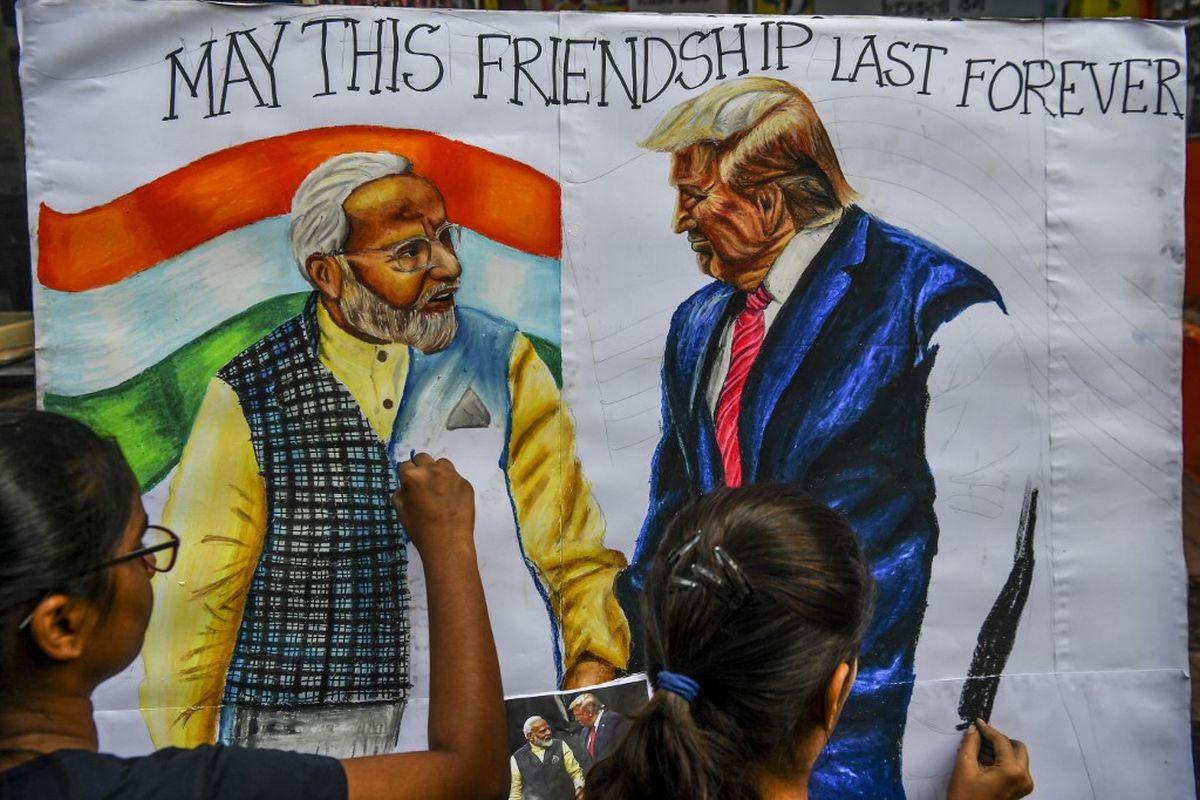 MAY THIS FRIENDSHIP LAST FOREVER